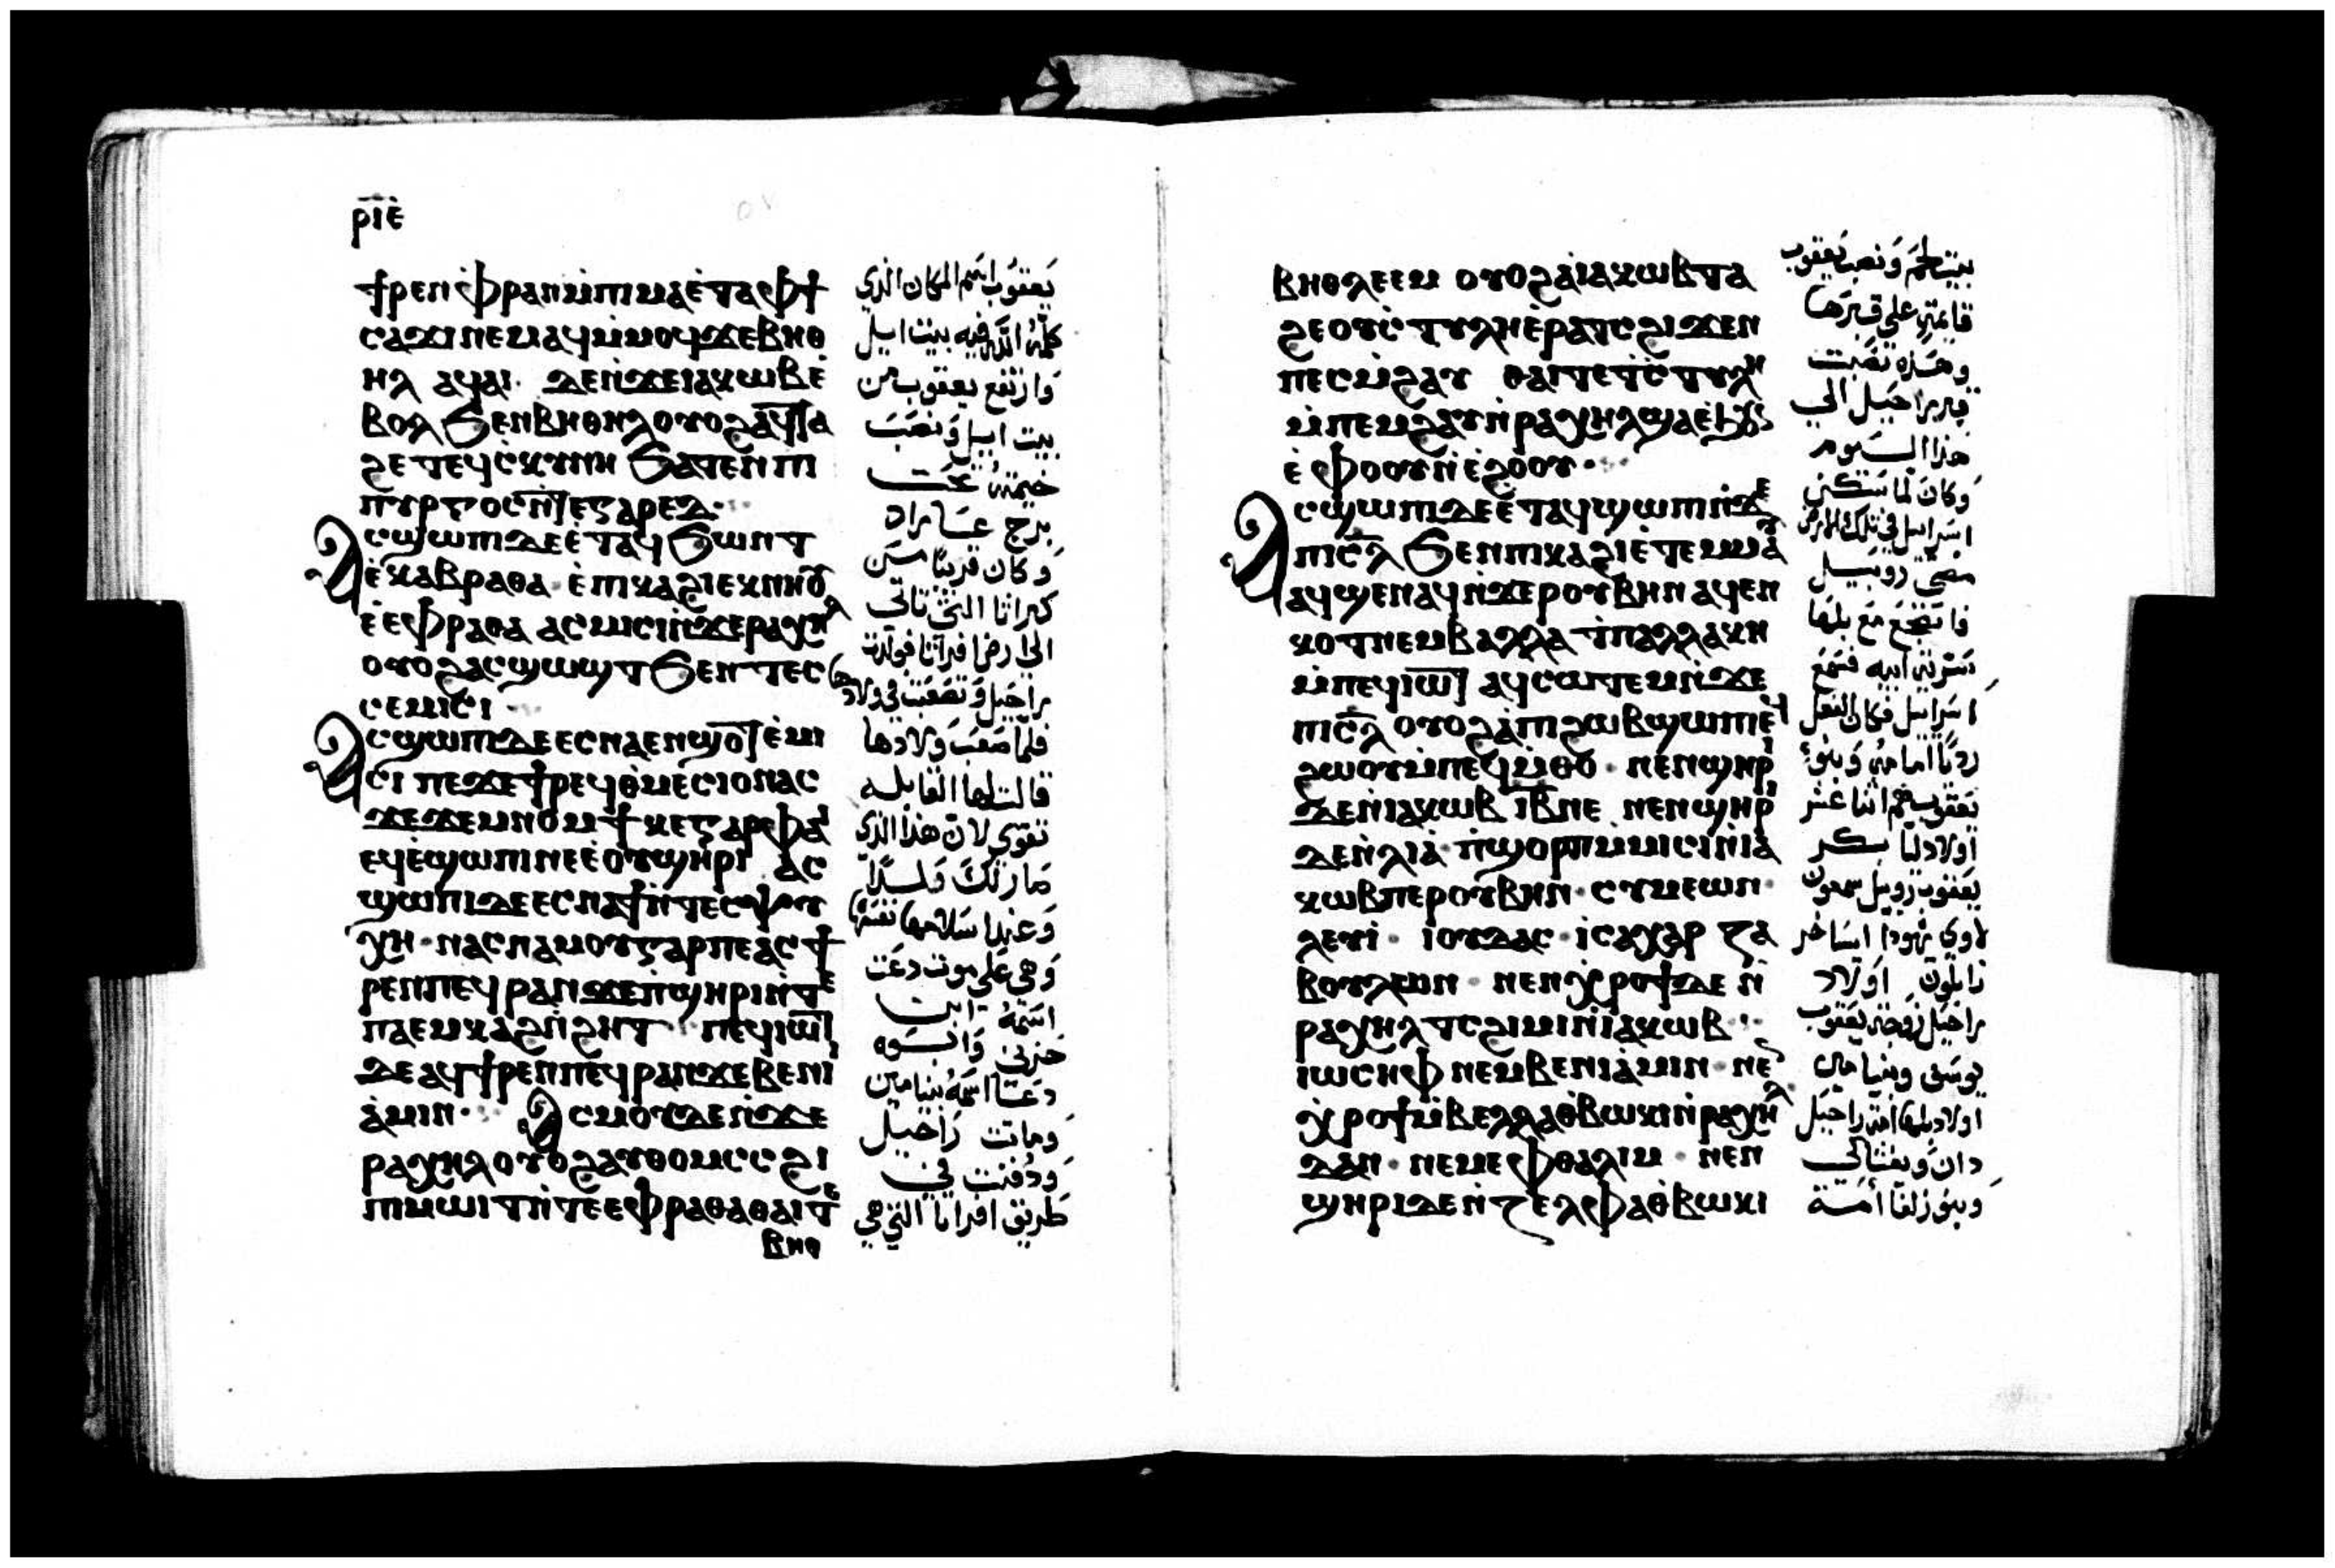 ⲣⲓⲉ
ϯⲣⲉⲛ ⲫⲣⲁⲛ ⲙⲡⲓⲙⲁ ⲉⲧⲁ ⲫϯ
ⲥⲁϫⲓ ⲛⲉⲙⲁϥ ⲙⲙⲟϥ ϫⲉ ⲃⲏⲑ
ⲏⲗ ⲁϥⲁⲓ ⲇⲉ ⲛϫⲉ ⲓⲁⲕⲱⲃ ⲉ
ⲃⲟⲗ ϧⲉⲛ ⲃⲏⲑⲏⲗ ⲟⲩⲟϩ ⲁϥⲧⲁ
ϩⲉ ⲧⲉϥⲥⲕⲩⲛⲏ ϧⲁⲧⲉⲛ ⲡⲓ
ⲡⲩⲣⲅⲟⲥ ⲛⲧⲉ ⲅⲁⲣⲉⲇ
ⲁⲥϣⲱⲡⲓ ⲇⲉ ⲉⲧⲁϥϧⲱⲛⲧ
ⲉⲭⲁⲃⲣⲁⲑⲁ ⲉⲡⲕⲁϩⲓ ⲉⲕⲛⲏⲟⲩ
ⲉⲉⲫⲣⲁⲑⲁ ⲁⲥⲙⲓⲥⲓ ⲛϫⲉ ⲣⲁⲭⲏⲗ
ⲟⲩⲟϩ ⲁⲥϣⲱϣⲧ ϧⲉⲛ ⲧⲉⲥ
ⲥⲉⲙⲓⲥⲓ
ⲁⲥϣⲱⲡⲓ ⲇⲉ ⲉⲥⲛⲁⲉⲛϣⲟⲧ ⲉⲙⲓ
ⲥⲓ ⲡⲉϫⲉ ϯⲣⲉϥⲑⲙⲉⲥⲓⲟ ⲛⲁⲥ
ϫⲉ ϫⲉⲙⲛⲟⲙϯ ⲕⲉ ⲅⲁⲣ ⲫⲁⲓ
ⲉϥⲉϣⲱⲡⲓ ⲛⲉ ⲉⲟⲩϣⲏⲣⲓ ⲁⲥ
ϣⲱⲡⲓ ⲇⲉ ⲉⲥⲛⲁϯ ⲛⲧⲉⲥⲯⲩ
ⲭⲏ ⲛⲁⲥⲛⲁⲙⲟⲩ ⲅⲁⲣ ⲡⲉ ⲁⲥϯ
ⲣⲉⲛ ⲡⲉϥⲣⲁⲛ ϫⲉ ⲡϣⲏⲣⲓ ⲛⲧⲉ
ⲡⲁⲉⲙⲕⲁϩ ⲛϩⲏⲧ ⲡⲉϥⲓⲱⲧ
ⲇⲉ ⲁϥϯⲣⲉⲛ ⲡⲉϥⲣⲁⲛ ϫⲉ ⲃⲉⲛⲓ
ⲁⲙⲓⲛ ⲁⲥⲙⲟⲩ ⲇⲉ ⲛϫⲉ
ⲣⲁⲭⲏⲗ ⲟⲩⲟϩ ⲁⲩⲑⲟⲙⲥⲥ ϩⲓ
ⲡⲙⲱⲓⲧ ⲛⲧⲉ ⲉⲫⲣⲁⲑⲁ ⲑⲁⲓ ⲧⲉ
ⲃⲏⲑ
يعقوب اسم المكان الذي
كلمه الله فيه بيت ايل
وارتفع يعقوب من
بيت ايل ونصب
خيمته تحت
برج عاراد
وكان قريبا من
كبراثا التي تاتي
الى ارض افراتا فولدت
راحيل وتصعبت في ولادها
فلما صعب ولادها
قالت لها القابله
تقوي لان هذا الذي
صار لك ولدًا
وعند اسلامها نفسها
وهي على موت دعت
اسمه ابن
حزني وابوه
دعا اسمه بنيامين
وماتت راحيل
ودفنت في
طريق افراتا التي هي
ⲃⲏⲑⲗⲉⲉⲙ ⲟⲩⲟϩ ⲁ ⲓⲁⲕⲱⲃ ⲧⲁ
ϩⲉ ⲟⲩⲥⲧⲩⲗⲏ ⲉⲣⲁⲧⲥ ϩⲓϫⲉⲛ
ⲡⲉⲥⲙϩⲁⲩ ⲑⲁⲓ ⲧⲉ ϯⲥⲧⲩⲗⲏ
ⲙⲡⲉⲙϩⲁⲩ ⲛⲣⲁⲭⲏⲗ ϣⲁ ⲉϧⲟⲩⲛ
ⲉⲫⲟⲟⲩ ⲛⲉϩⲟⲟⲩ
ⲁⲥϣⲱⲡⲓ ⲇⲉ ⲉⲧⲁϥϣⲱⲡⲓ ⲛϫⲉ
ⲡⲓⲥⲗ ϧⲉⲛ ⲡⲓⲕⲁϩⲓ ⲉⲧⲉⲙⲙⲁⲩ
ⲁϥϣⲉⲛⲁϥ ⲛϫⲉ ⲣⲟⲩⲃⲏⲛ ⲁϥⲉⲛ
ⲕⲟⲧ ⲛⲉⲙ ⲃⲁⲗⲗⲁ ϯⲡⲁⲗⲗⲁⲕⲏ
ⲙⲡⲉϥⲓⲱⲧ ⲁϥⲥⲱⲧⲉⲙ ⲛϫⲉ
ⲡⲓⲥⲗ ⲟⲩⲟϩ ⲁ ⲡⲓϩⲱⲃ ϣⲱⲡⲓ ⲉϥ
ϩⲱⲟⲩ ⲙⲡⲉϥⲙⲑⲟ ⲛⲉⲛϣⲏⲣⲓ
ⲇⲉ ⲛⲓⲁⲕⲱⲃ ⲓⲃ ⲛⲉ ⲛⲉⲛϣⲏⲣⲓ
ⲇⲉ ⲛⲗⲓⲁ ⲡϣⲟⲣⲡ ⲙⲙⲓⲥⲓ ⲛⲓⲁ
ⲕⲱⲃ ⲡⲉ ⲣⲟⲩⲃⲏⲛ ⲥⲩⲙⲉⲱⲛ
ⲗⲉⲩⲓ ⲓⲟⲩⲇⲁⲥ ⲓⲥⲁⲭⲁⲣ ⲍⲁ
ⲃⲟⲩⲗⲱⲛ ⲛⲉⲛⲭⲣⲟϯ ⲇⲉ ⲛ
ⲣⲁⲭⲏⲗ ⲧⲥϩⲓⲙⲓ ⲛⲓⲁⲕⲱⲃ
ⲓⲱⲥⲏⲫ ⲛⲉⲙ ⲃⲉⲛⲓⲁⲙⲓⲛ ⲛⲉⲛ
ⲭⲣⲟϯ ⲙⲃⲉⲗⲗⲁ ⲑⲃⲱⲕⲓ ⲛⲣⲁⲭⲏⲗ
ⲇⲁⲛ ⲛⲉⲙ ⲉⲫⲑⲁⲗⲓⲙ ⲛⲉⲛ
ϣⲏⲣⲓ ⲇⲉ ⲛⲍⲉⲗⲫⲁ ⲑⲃⲱⲕⲓ
بيت لحم ونصب يعقوب
قايمة على قبرها
وهذه نصبت
قبر راحيل الى
هذا اليوم
وكان لما سكن
اسراييل في تلك الارض
مضى روبيل
فاضجع مع بلها
سرية ابيه فسمع
اسراييل فكان الفعل
رديا امامه وبنو
يعقوب هم اثنا عشر
اولاد ليا بكر
يعقوب روبيل سمعون
لاوي يهودا ايساخر
زابلون اولاد
راحيل زوجة يعقوب
يوسف وبنيامين
اولاد بلها امة راحيل
دان ونفتالي
وبنو زلفا امة